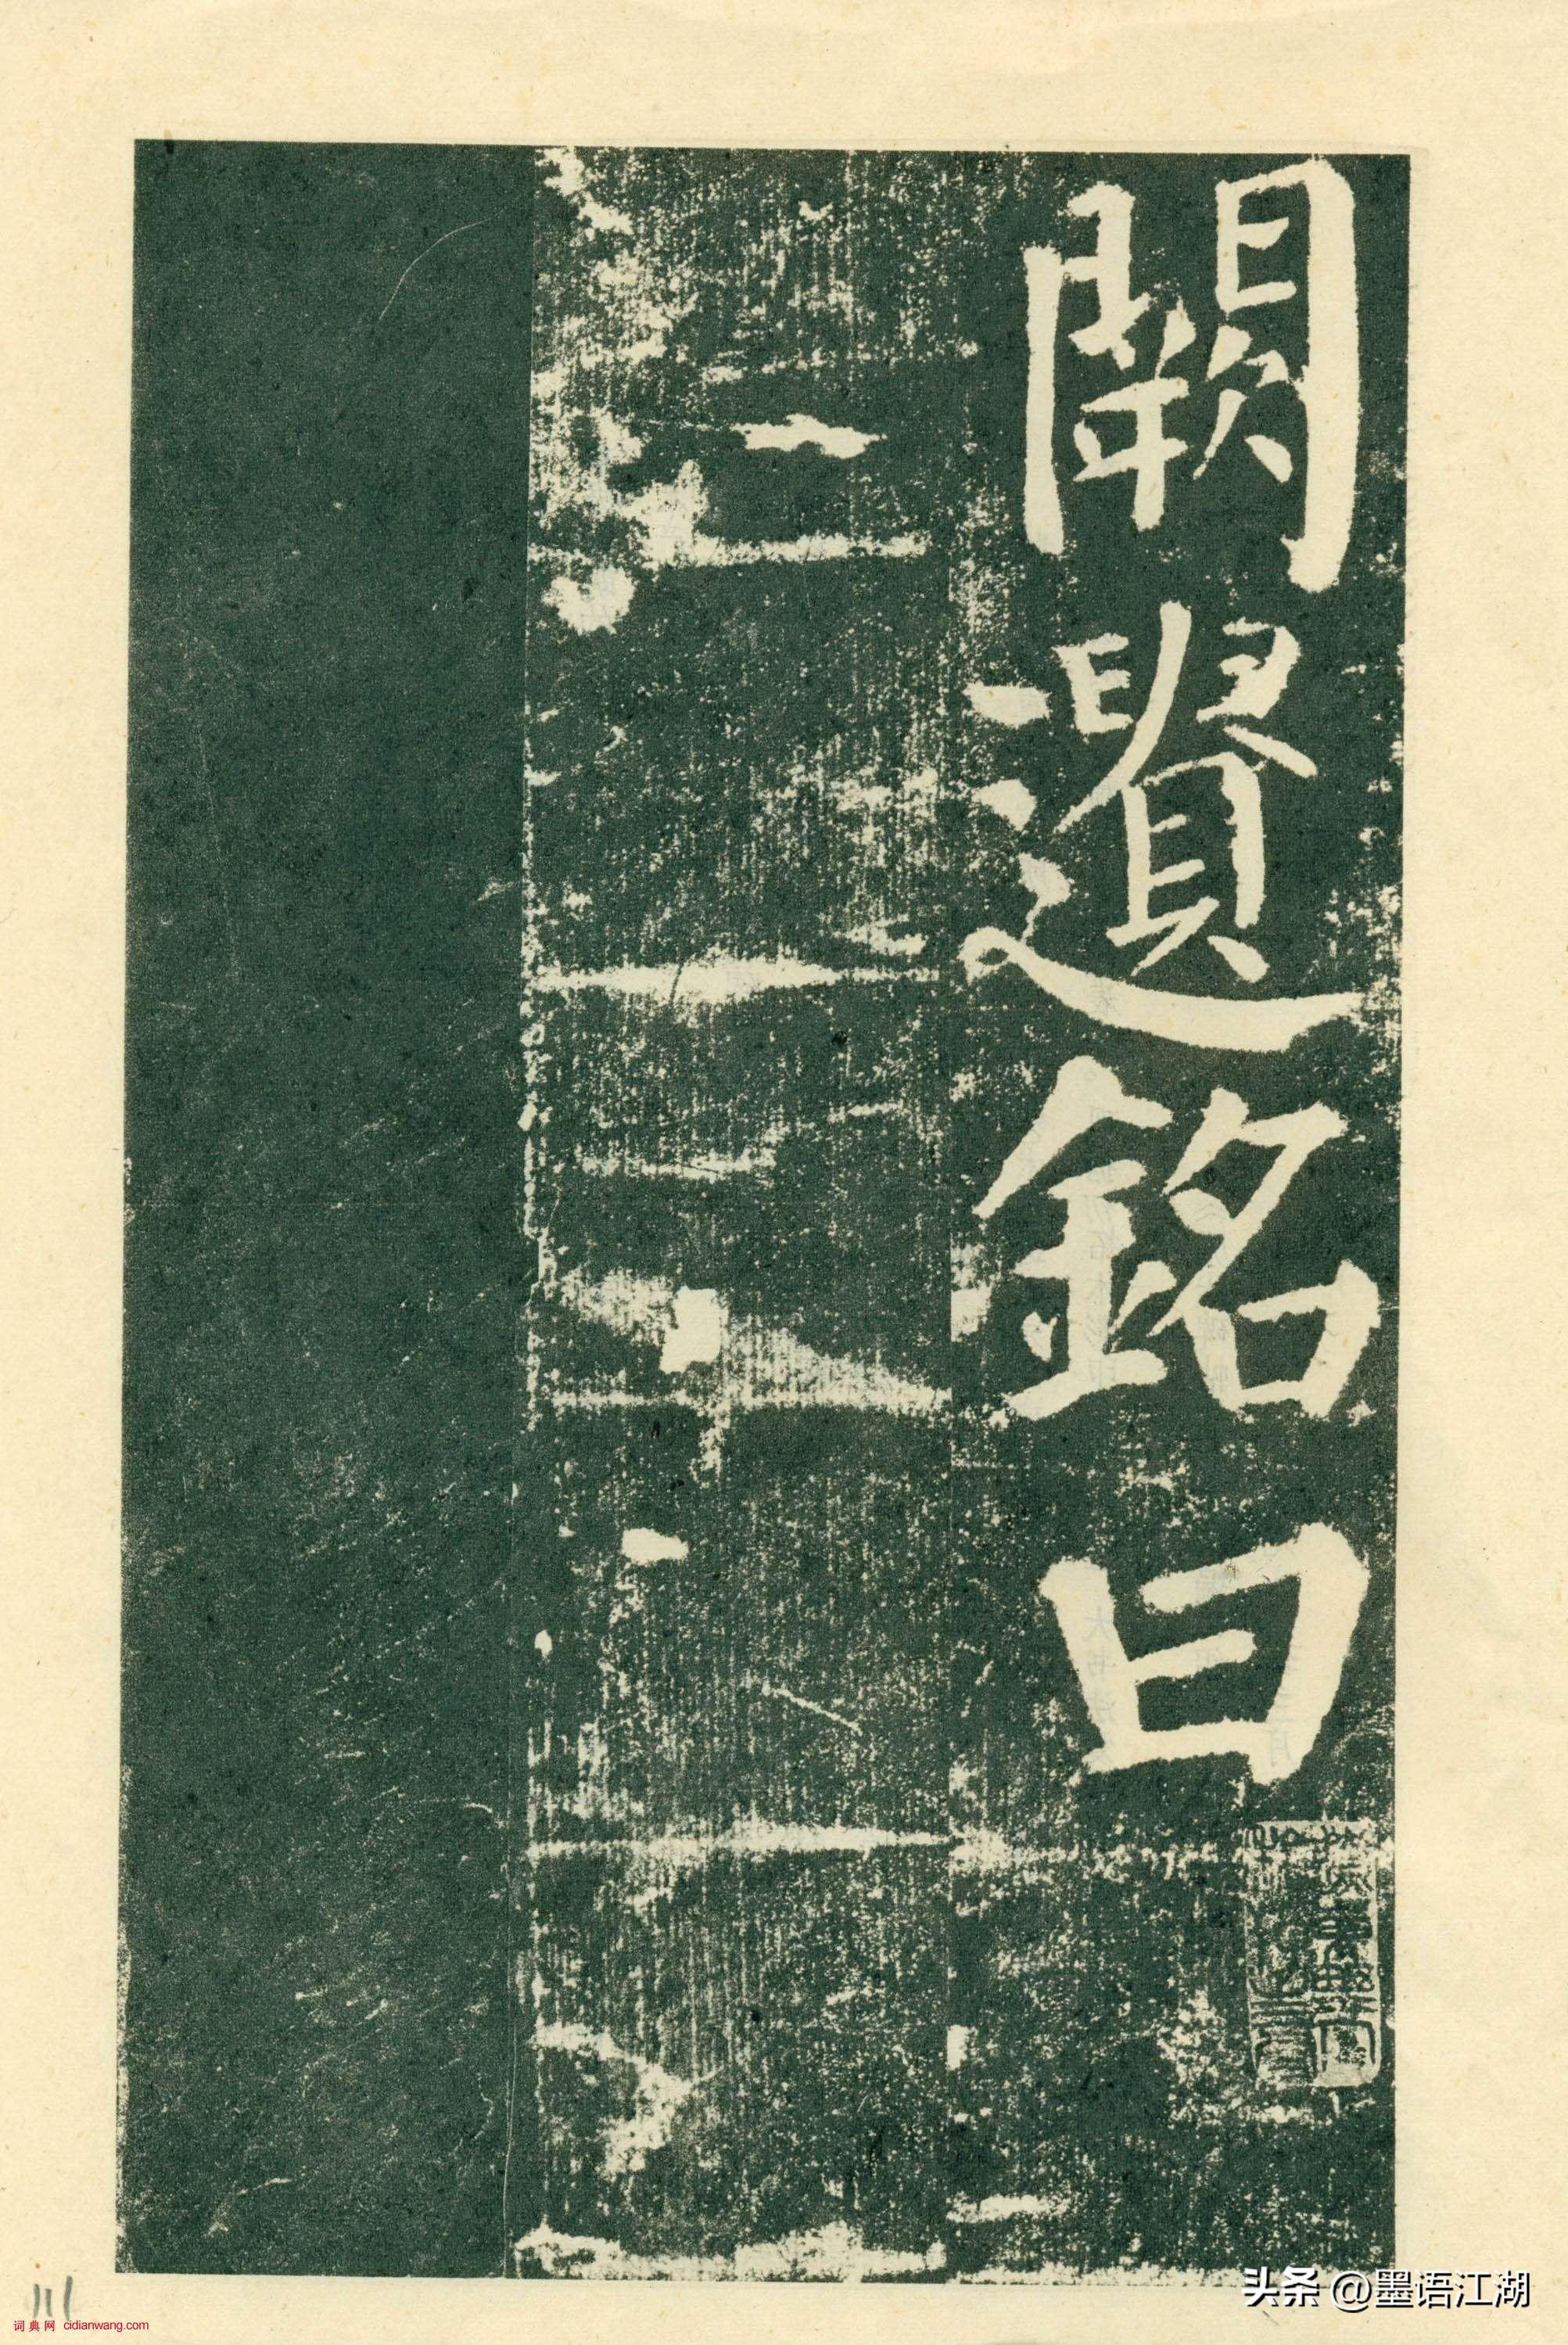 闕遺銘曰
头条 @墨语江湖
词典网 cidianwang.com